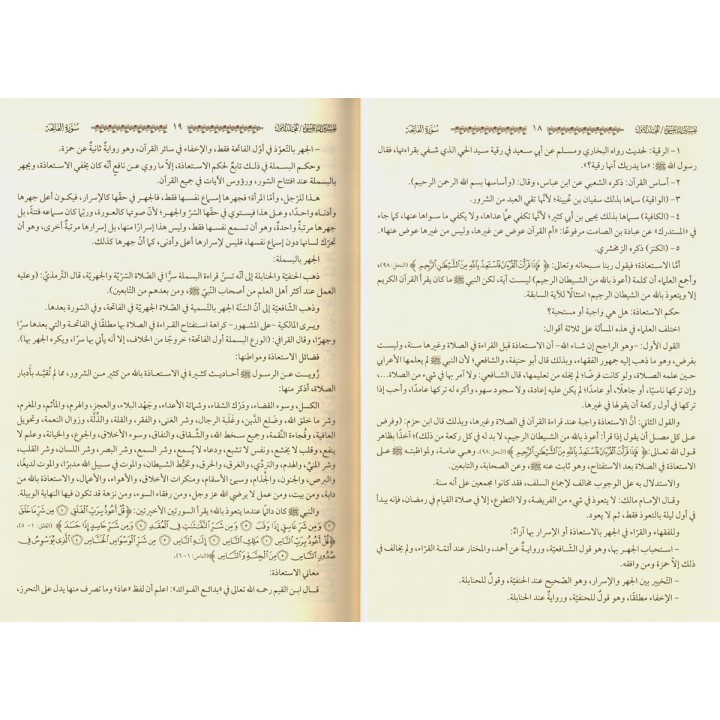 ١٨ سُورَةُ الفَاتِحَة
١- الرقية: لحديث رواه البخاري ومسلم عن أبي سعيد في رقية سيد الحي الذي شفي بقراءتها، فقال
رسول الله ﷺ: «ما يدريك أنها رقية؟».
٢- أساس القرآن: ذكره الشعبي عن ابن عباس، وقال: (وأساسها بسم الله الرحمن الرحيم).
٣- (الواقية) سماها بذلك سفيان بن عُيينة؛ لأنها تقي العبد من الشرور.
٤- (الكافية) سماها بذلك يحيى بن أبي كثير؛ لأنها تكفي عمَّا عداها، ولا يكفي ما سواها عنها، كما جاء
في «المستدرك» عن عبادة بن الصامت مرفوعًا: «أم القرآن عوض عن غيرها، وليس من غيرها عوض عنها».
٥- (الكنز) ذكره الزمخشري.
أمَّا الاستعاذة؛ فيقول ربنا سبحانه وتعالى: ﴿فَإِذَا قَرَأْتَ الْقُرْءَانَ فَاسْتَعِذْ بِاللَّهِ مِنَ الشَّيْطَانِ الرَّجِيمِ﴾ (النحل: ٩٨)،
وأجمع العلماء أن كلمة (أعوذ بالله من الشيطان الرجيم) ليست آية، لكن النبي ﷺ ما كان يقرأ القرآن الكريم
إلا ويتعوذ بالله من الشيطان الرجيم؛ امتثالًا للآية السابقة.
حكم الاستعاذة: هل هي واجبة أو مستحبة؟
اختلف العلماء في هذه المسألة على ثلاثة أقوال:
القول الأول: -وهو الراجح إن شاء الله- أن الاستعاذة قبل القراءة في الصلاة وغيرها سنة، وليست
بفرض، وهو ما ذهب إليه جمهور الفقهاء، وبذلك قال أبو حنيفة، والشافعي؛ لأن النبي ﷺ لم يعلمها الأعرابي
حين علمه الصلاة، ولو كانت فرضًا لم يخله من تعليمها، قال الشافعي: ولا آمر بها في شيء من الصلاة...،
وإن تركها ناسيًا، أو جاهلًا، أو عامدًا؛ لم يكن عليه إعادة، ولا سجود سهو، وأكره له تركها عامدًا، وأحب إذا
تركها في أول ركعة أن يقولها في غيرها.
والقول الثاني: أنَّ الاستعاذة واجبة عند قراءة القرآن في الصلاة وغيرها، وبذلك قال ابن حزم: (وفرض
على كل مصل أن يقول إذا قرأ: أعوذ بالله من الشيطان الرجيم، لا بد له في كل ركعة من ذلك)؛ أخذًا بظاهر
قول الله تعالى: ﴿فَإِذَا قَرَأْتَ الْقُرْءَانَ فَاسْتَعِذْ بِاللَّهِ مِنَ الشَّيْطَانِ الرَّجِيمِ﴾ (النحل: ٩٨)، وهي عامة، ولمواظبته ﷺ على
الاستعاذة في الصلاة بعد الاستفتاح، وهو ثابت عنه ﷺ، وعن الصحابة، والتابعين.
والاستدلال به على الوجوب مخالف لإجماع السلف، فقد كانوا مجمعين على أنه سنة.
وقال الإمام مالك: لا يتعوذ في شيء من الفريضة، ولا التطوع، إلا في صلاة القيام في رمضان، فإنه يبدأ
في أول ليلة بالتعوذ فقط، ثم لا يعود.
وللفقهاء والقراء في الجهر بالاستعاذة أو الإسرار بها آراءٌ:
- استحباب الجهر بها، وهو قول الشافعيّة، وروايةٌ عن أحمد، والمختار عند أئمّة القرّاء، ولم يخالف في
ذلك إلاّ حمزة ومن وافقه.
- التّخيير بين الجهر والإسرار، وهو الصّحيح عند الحنفيّة، وقولٌ للحنابلة.
- الإخفاء مطلقًا، وهو قولٌ للحنفيّة، وروايةٌ عند الحنابلة.
١٩ سُورَةُ الفَاتِحَة
- الجهر بالتّعوّذ في أوّل الفاتحة فقط، والإخفاء في سائر القرآن، وهو روايةٌ ثانيةٌ عن حمزة.
وحكم البسملة في ذلك تابعٌ لحكم الاستعاذة، إلاّ ما روي عن نافعٍ أنّه كان يخفي الاستعاذة، ويجهر
بالبسملة عند افتتاح السّور، ورؤوس الآيات في جميع القرآن.
هذا للرّجل، وأمّا المرأة؛ فجهرها إسماع نفسها فقط، والجهر في حقّها كالإسرار، فيكون أعلى جهرها
وأدناه واحدًا، وعلى هذا فيستوي في حقّها السّرّ والجهر؛ لأنّ صوتها كالعورة، وربّما كان سماعه فتنةً، بل
جهرها مرتبةٌ واحدةٌ، وهو أن تسمع نفسها فقط، وليس هذا إسرارًا منها، بل إسرارها مرتبةٌ أخرى، وهو أن
تحرّك لسانها دون إسماع نفسها، فليس لإسرارها أعلى وأدنى، كما أنّ جهرها كذلك.
الجهر بالبسملة:
ذهب الحنفيّة والحنابلة إلى أنّه تسنّ قراءة البسملة سرًّا في الصّلاة السّرّيّة والجهريّة، قال التّرمذيّ: (وعليه
العمل عند أكثر أهل العلم من أصحاب النّبيّ ﷺ، ومن بعدهم من التّابعين).
وذهب الشّافعيّة إلى أنّ السّنّة الجهر بالتّسمية في الصّلاة الجهريّة في الفاتحة، وفي السّورة بعدها.
ويرى المالكية -على المشهور- كراهة استفتاح القراءة في الصلاة بها مطلقًا في الفاتحة والتي بعدها سرًّا
وجهرًا، وقال القرافي: (الورع البسملة أول الفاتحة؛ خروجًا من الخلاف، إلا أنه يأتي بها سرًا، ويكره الجهر بها).
فضائل الاستعاذة ومواطنها:
رُويت عن الرسول ﷺ أحاديث كثيرة في الاستعاذة بالله من كثير من الشرور، مما لم تُقيَّد بأدبار
الصلاة، أذكر منها:
الكسل، وسوء القضاء، ودَرَك الشقاء، وشماتة الأعداء، وجَهْد البلاء، والعجز، والهرم، والمأثم، والمغرم،
وشر ما خلق الله، وضَلَع الدَّين، وغَلَبة الرجال، وشر الغنى، والفقر، والقلة، والذِّلَّة، وزوال النعمة، وتحويل
العافية، وفُجاءة النِّقمة، وجميع سخط الله، والشِّقاق، والنفاق، وسوء الأخلاق، والجوع، والخيانة، وعلم لا
ينفع، وقلب لا يخشع، ونفس لا تشبع، ودعاء لا يُسمع، وشر السمع، وشر البصر، وشر اللسان، وشر القلب،
وشر المنيّ، والهدم، والتردّي، والغرق، والحرق، وتخبُّط الشيطان، والموت في سبيل الله مدبرًا، والموت لديغًا،
والبرص، والجنون، والجذام، وسيئ الأسقام، ومنكرات الأخلاق، والأهواء، والأعمال، والاستعاذة بالله من
دابة، ومن بيت، ومن عمل لا يرضي الله عز وجل، ومن رفقاء السوء، ومن نزعة قد تكون فيها النهاية الوبيلة.
والنبي ﷺ كان دائمًا عندما يتعوذ بالله؛ يقرأ السورتين الأخيرتين: ﴿قُلْ أَعُوذُ بِرَبِّ الْفَلَقِ ۝ مِن شَرِّ مَا خَلَقَ
۝ وَمِن شَرِّ غَاسِقٍ إِذَا وَقَبَ ۝ وَمِن شَرِّ النَّفَّاثَاتِ فِي الْعُقَدِ ۝ وَمِن شَرِّ حَاسِدٍ إِذَا حَسَدَ﴾ (الفلق: ١-٥)،
﴿قُلْ أَعُوذُ بِرَبِّ النَّاسِ ۝ مَلِكِ النَّاسِ ۝ إِلَهِ النَّاسِ ۝ مِن شَرِّ الْوَسْوَاسِ الْخَنَّاسِ ۝ الَّذِي يُوَسْوِسُ فِي
صُدُورِ النَّاسِ ۝ مِنَ الْجِنَّةِ وَالنَّاسِ﴾ (الناس: ١-٦).
معاني الاستعاذة:
قال ابن القيم رحمه الله تعالى في «بدائع الفوائد»: اعلم أن لفظ «عاذ» وما تصرف منها يدل على التحرز،